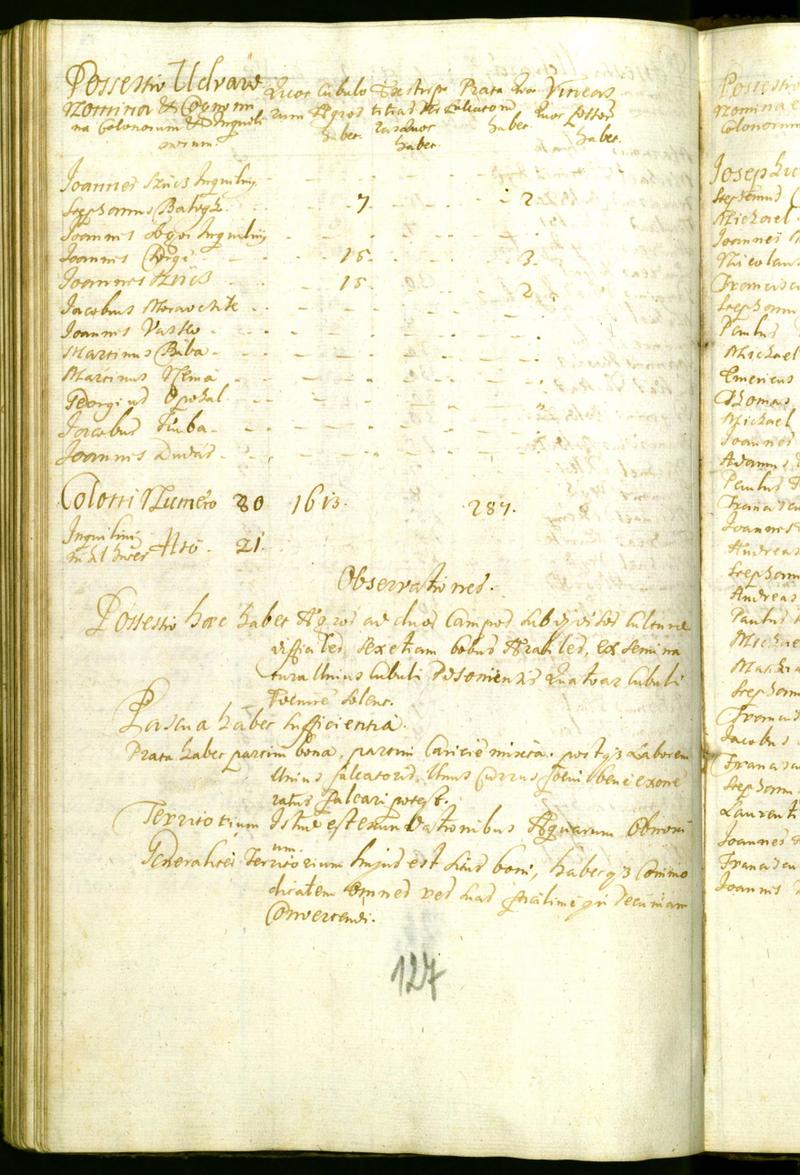 Possessio Udvard
Nomina & Cognomi
na Colonorum & Inquili
norum
Quot Cubulo
rum Agros
habet
Exstirpa
titias Ter
ras quot
habet
Prata quot
Falcatorum
habet
Vineas
quot Fossor
habet
Joannes Szücs Inquilinus - - - - -
Stephanus Balogh - - 7. - - 2.
Joannis Inquilinus - - - - -
Joannis - - 15 - - 3.
Joannis Szücs - - 15. - - 2.
Jacobus Moravchik - - - - -
Joannis Vasko - - - - -
Martinus Biba - - - - -
Martinus Nema - - - - -
Georgius Opohal - - - - -
Jacobus Kuba - - - - -
Joannis Dudás - - - - -
Coloni Numero 80 1613. 287.
Inquilini
21.
Observationes.
Possessio haec habet Agros ad duos Campos subdivisos culturae
difficiles, sex etiam bobus Arabiles, ex semina
tura Unius Cubuli Posoniensis Quatuor Cubuli
venire solent.
Pascua habet sufficientia.
Prata habet partim bona, partim Caricie mixta. postq3 Laborem
Unius falcatoris, Unus Currus foeni bene exone
ratus falcari potest.
Territorium Istud est exundationibus Aquarum Obnoxi
um.
Generaliter Territorium hujus est sat boni, habetq3 Commo
ditatem Omnes res suas facilime in Pecuniam
Convertendi.
127
Possessio
Nomina
Colonorum
Joseph
Stephanus
Michael
Joannes
Nicolaus
Francisc
Stephanu
Paulus
Michael
Emericus
Thomas
Michael
Joannes
Adamus
Paulus
Francisc
Joannis
Andreas
Stephanu
Andreas
Paulus
Michae
Stephanu
Jacobus
Francisc
Stephanu
Laurenti
Joannes
Francisc
Joannis